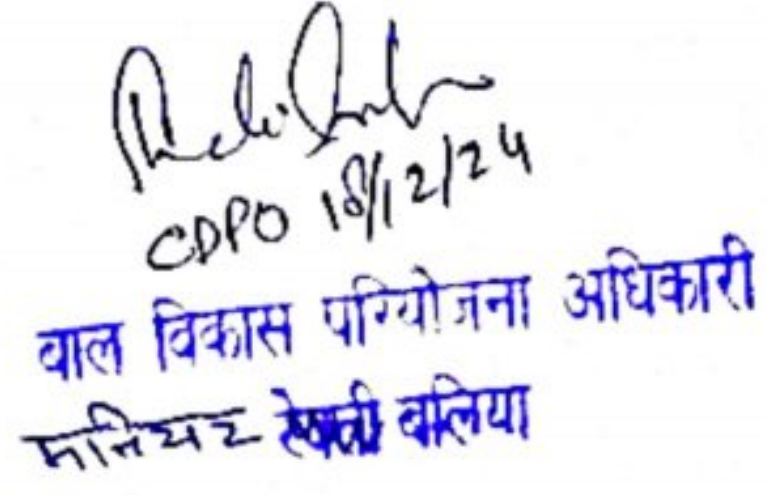 CDPO 18/12/24
बाल विकास परियोजना अधिकारी
मनियर बलिया